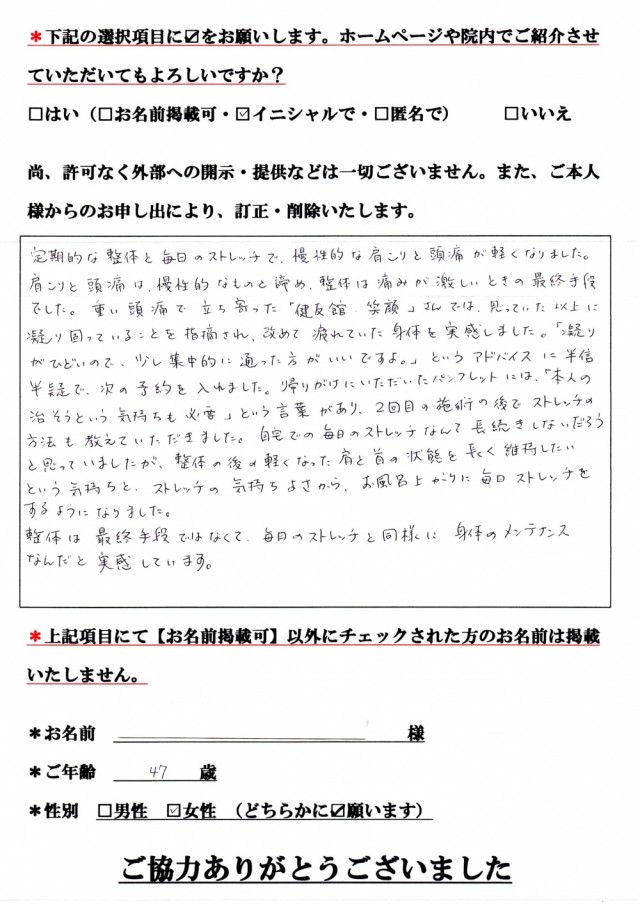 ＊下記の選択項目に☑をお願いします。ホームページや院内でご紹介させ
ていただいてもよろしいですか？
□はい（□お名前掲載可・☑イニシャルで・□匿名で）　　□いいえ
尚、許可なく外部への開示・提供などは一切ございません。また、ご本人
様からのお申し出により、訂正・削除いたします。
定期的な整体と毎日のストレッチで、慢性的な肩こりと頭痛が軽くなりました。
肩こりと頭痛は、慢性的なものと諦め、整体は痛みが激しいときの最終手段
でした。重い頭痛で立ち寄った「健友館 笑顔」さんでは、思っていた以上に
凝り固っていることを指摘され、改めて疲れていた身体を実感しました。「凝り
がひどいので、少し集中的に通った方がいいですよ。」というアドバイスに半信
半疑で、次の予約を入れました。帰りがけにいただいたパンフレットには、「本人の
治そうという気持ちも必要」という言葉があり、2回目の施術の後でストレッチの
方法も教えていただきました。自宅での毎日のストレッチなんて長続きしないだろう
と思っていましたが、整体の後の軽くなった肩と首の状態を長く維持したい
という気持ちと、ストレッチの気持ちよさから、お風呂上がりに毎日ストレッチを
するようになりました。
整体は最終手段ではなくて、毎日のストレッチと同様に身体のメンテナンス
なんだと実感しています。
＊上記項目にて【お名前掲載可】以外にチェックされた方のお名前は掲載
いたしません。
＊お名前　様
＊ご年齢　47　歳
＊性別　□男性　☑女性　（どちらかに☑願います）
ご協力ありがとうございました